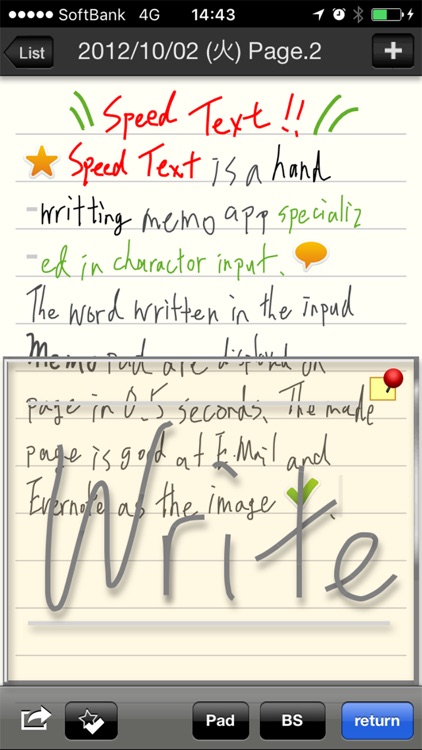 SoftBank 4G 14:43
List 2012/10/02 (火) Page.2 +
Speed Text !!
Speed Text is a hand
-writting memo app specializ
-ed in charactor input.
The word written in the inpud
Memo pad are displayd on
page in 0.5 seconds. The made
page is good at E.Mail and
Evernote as the image
Write
Pad BS return